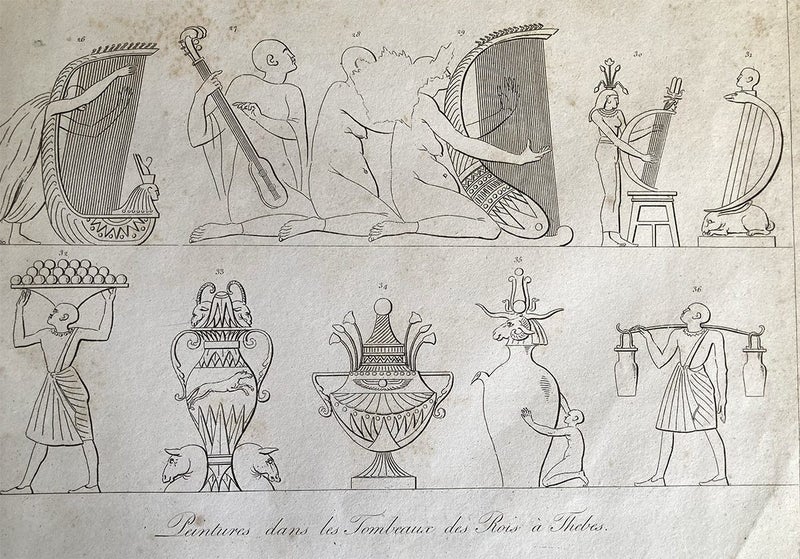 26 27 28 29 30 31
32 33 34 35 36
Peintures dans les Tombeaux des Rois à Thebes.